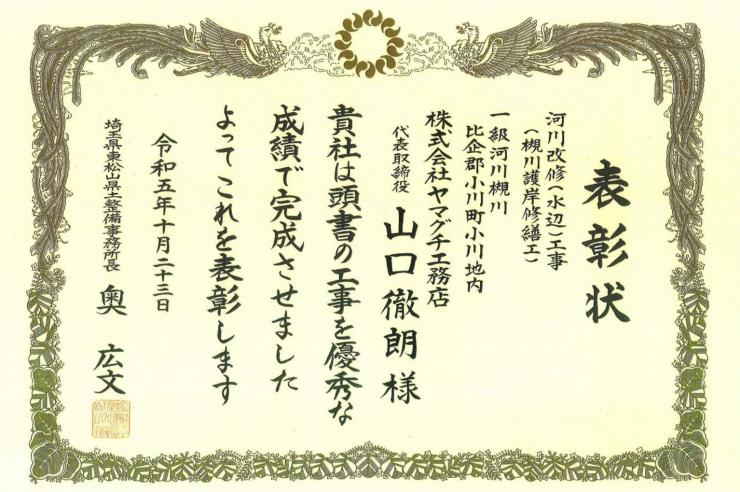 表彰状
河川改修(水辺)工事
(槻川護岸修繕工)
一級河川槻川
比企郡小川町小川地内
株式会社ヤマグチ工務店
代表取締役 山口徹朗様
貴社は頭書の工事を優秀な
成績で完成させました
よってこれを表彰します
令和五年十月二十三日
埼玉県東松山県土整備事務所長 奥広文